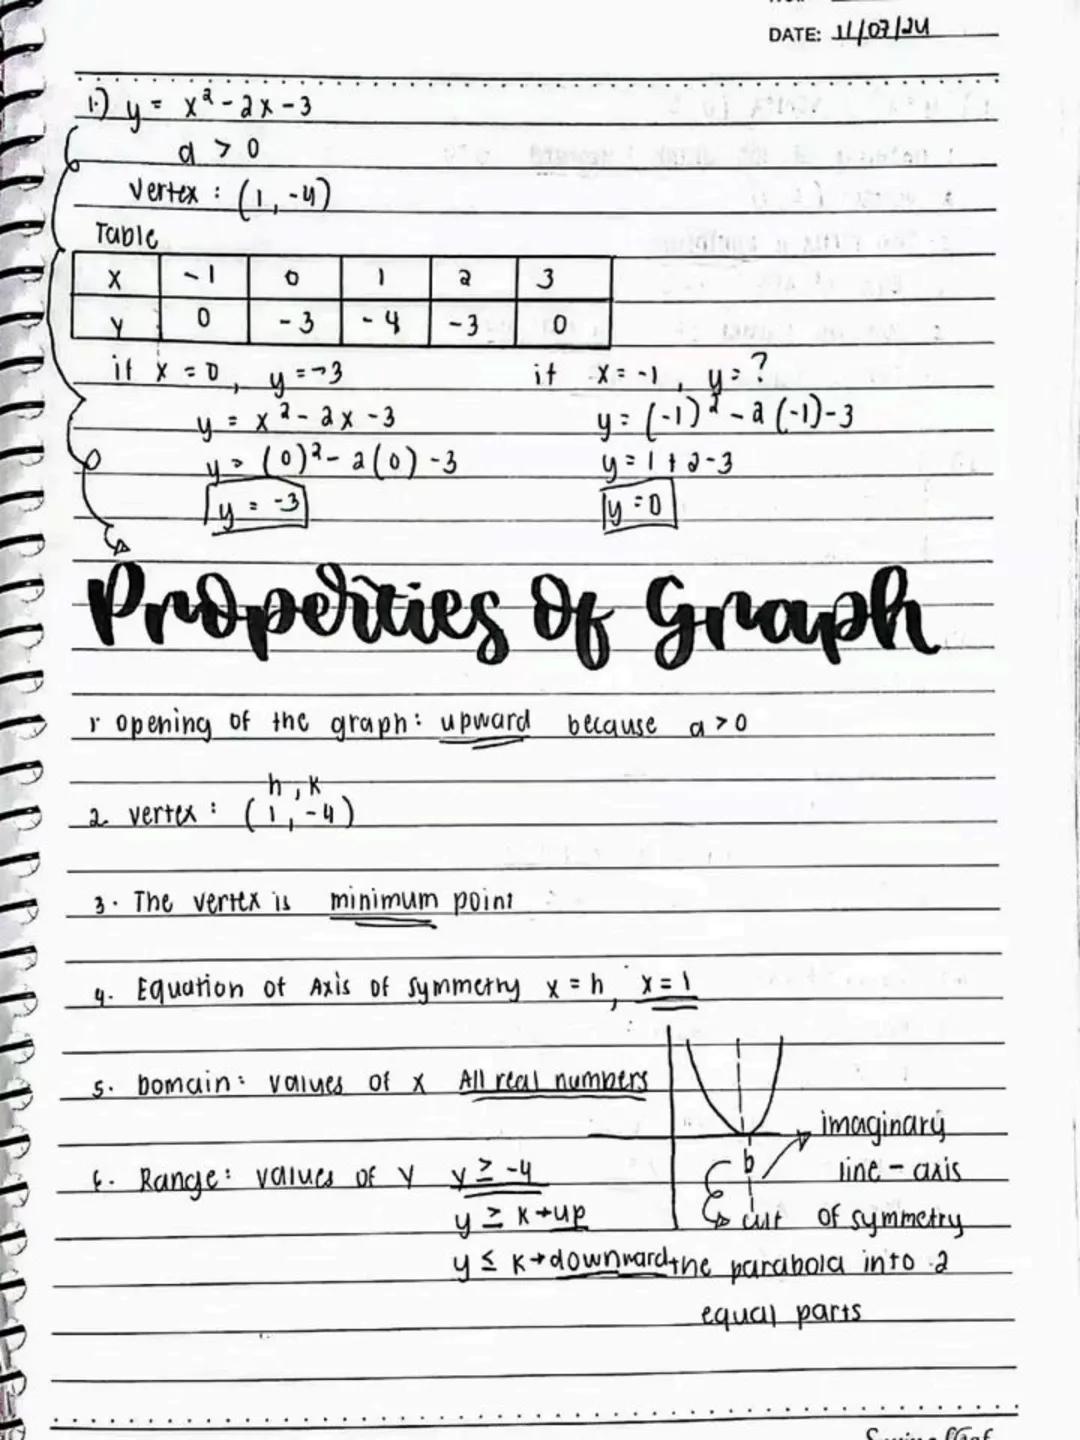 DATE: 11/07/24
1.) y = x² - 2x - 3
a > 0
Vertex : (1, -4)
Table
X -1 0 1 2 3
Y 0 -3 -4 -3 0
if x = 0, y = -3 if x = -1, y = ?
y = x² - 2x - 3 y = (-1)² - 2(-1) - 3
y = (0)² - 2(0) - 3 y = 1 + 2 - 3
y = -3 y = 0
Properties of Graph
1. opening of the graph: upward because a > 0
h, k
2. vertex : (1, -4)
3. The vertex is minimum point
4. Equation of Axis of symmetry x = h, x = 1
5. Domain: values of x All real numbers
imaginary
6. Range: values of y y ≥ -4 line - axis
y ≥ k → up cut of symmetry
y ≤ k → downward the parabola into 2
equal parts